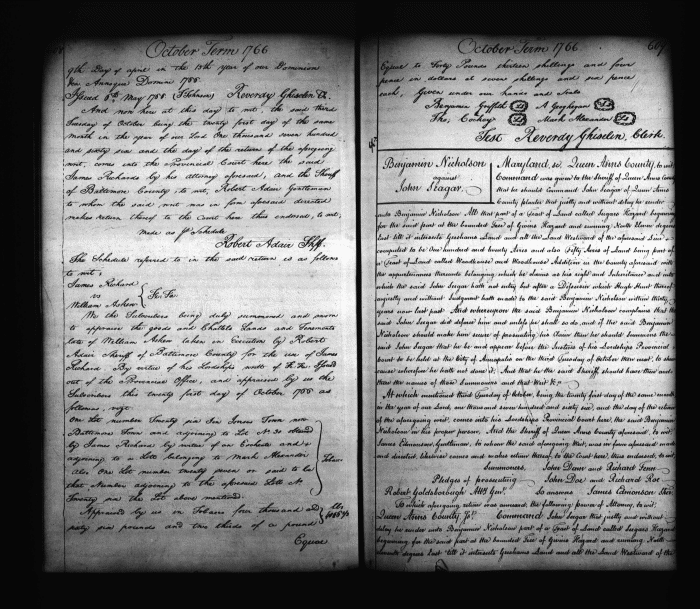 October Term 1766
9th Day of april in the 15th year of our Dominion
&ca Annoqua Domini 1766
Issued 6th May 1766 (Johnson) Reverdy Ghiselin Ck.
And now here at this day to wit, the said third
Tuesday of October being the twenty first day of the same
month in the year of our Lord One thousand seven hundred
and sixty six and the day of the return of the aforegoing
writ, comes into the Provincial Court here the said
James Richards by his attorney aforesaid, and the Sheriff
of Baltimore County, to wit, Robert Adair Gentleman
to whom the said writ was in form aforesaid directed
makes return thereof to the Court here thus endorsed, to wit,
Made as pr Schedule
Robert Adair Shff.
The Schedule referred to in the said return is as follows
to wit,
James Richard
vs
William Askew
Fi. Fa.
We the Subscribers being duly summoned and sworn
to appraise the goods and Chattels Lands and Tenements
late of William Askew taken in Execution by Robert
Adair Sheriff of Baltimore County for the use of James
Richard By virtue of his Lordships writt of Fi. Fa. Issued
out of the Provincial Office, and appraised by us the
Subscribers this twenty first day of October 1766 as
follows, vizt
One lot number Twenty six in Jones Town now
Baltimore Town and adjoining to Lot No 30
by James Richard by virtue of an
adjoining to a lott belonging to Mark Alexander
also One lot number twenty seven or said to be
that Number adjoining to the aforesaid Lott No
Twenty six the Lot above mentioned.
Appraised by us in Tobacco four thousand
sixty six pounds and two thirds of a pound
Equal
October Term 1766
Equal to Forty Pounds thirteen shillings and four
pence in dollars at seven shillings and six pence
each, Given under our hands and Seals
Benjamin Griffith A Geoghegan
Tho. Conhay Mark Alexander
Test Reverdy Ghiselin, Clerk.
Benjamin Nicholson
against
John Seagar
Maryland, sc. Queen Anns County, to wit
Command was given to the Sheriff of Queen Anns County
that he should Command John Seagar of Queen Anns
County planter that justly and without delay he render
unto Benjamin Nicholson All that part of a Tract of Land called Sugars Hazard beginning
for the said part at the bounded Tree of Gwins Hazard and running North Eleven degrees
East till it intersects Greshams Land and all the Land Westward of the aforesaid Line
computed to be One hundred and twenty Acres and also Fifty Acres of Land being part of
a Tract of Land called Woodhouse and Woodhouse Addition in the County aforesaid with
the appurtenances thereunto belonging which he claims as his right and Inheritance and into
which the said John Seagar hath not entry but after a Disseisin which Hugh Hunt thereof
unjustly and without Judgment hath made to the said Benjamin Nicholson within thirty
years now last past And whereupon the said Benjamin Nicholson complains that the
said John Seagar did deforce him and unless he shall so do, and if the said Benjamin
Nicholson should make him secure of prosecuting his Claim then he should Summons the
said John Seagar that he be and appear before the Justices of his Lordships Provincial
Court to be held at the City of Annapolis on the third Tuesday of October then next, to shew
cause wherefore he hath not done it; And that he the said Sheriff should have then and
there the names of those Summoners and that Writ &c.
At which mentioned third Tuesday of October, being the twenty first day of the same month,
in the year of our Lord, one thousand seven hundred and sixty six, and the day of the return
of the aforegoing writ, comes into his Lordships Provincial Court here, the said Benjamin
Nicholson in his proper person, And the Sheriff of Queen Anns County aforesaid, to wit
James Edmonson, Gentleman, to whom the said aforegoing Writ, was in form aforesaid made
and directed, likewise comes and makes return thereof, to the Court here, thus endorsed, to wit,
Summoners, John Dann and Richard Fenn
Pledges of prosecuting John Doe and Richard Roe
Robert Goldsborough Att'y Genl. So answers James Edmonson Shff
To which aforegoing return was annexed the following power of Attorney, to wit;
Queen Anns County, Sc. Command John Seagar that justly and without
delay he render unto Benjamin Nicholson part of a Tract of Land called Seagars Hazard
beginning for the said part at the bounded Tree of Gwins Hazard and running North
Eleven degrees East till it intersects Greshams Land and all the Land Westward of the